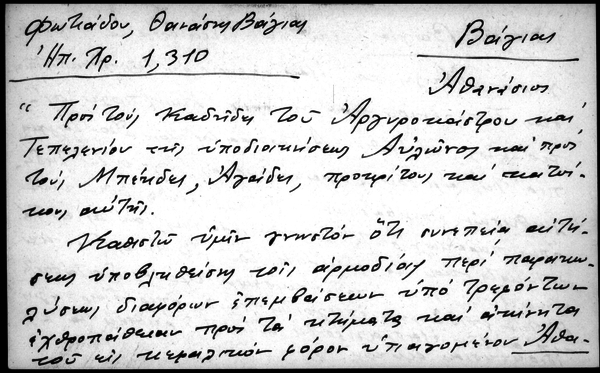 Φωτιάδου, Θανάσης Βάγιας
Ἠπ. Χρ. 1,310
Βάγιας
Ἀθανάσιος
"Πρός τούς Καδῆδες τοῦ Ἀργυροκάστρου καί
Τεπελενίου τῆς ὑποδιοικήσεως Αὐλῶνος καί πρός
τούς Μπέηδες, Ἀγάδες, προκρίτους καί κατοί-
κους αὐτῆς.
Καθιστῶ ὑμῖν γνωστόν ὅτι συνεπεία αἰτή-
σεως ὑποβληθείσης τοῖς ἁρμοδίοις περί παρακω-
λύσεως διαφόρων ἐπεμβάσεων ὑπό τρεφόντων
ἐχθροπάθειαν πρός τά κτήματα καί ἀκίνητα
τοῦ εἰς κεφαλικόν φόρον ὑπαγομένου Ἀθα-